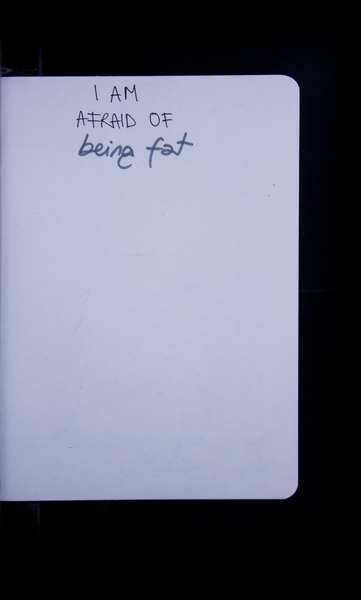 I AM
AFRAID OF
being fat